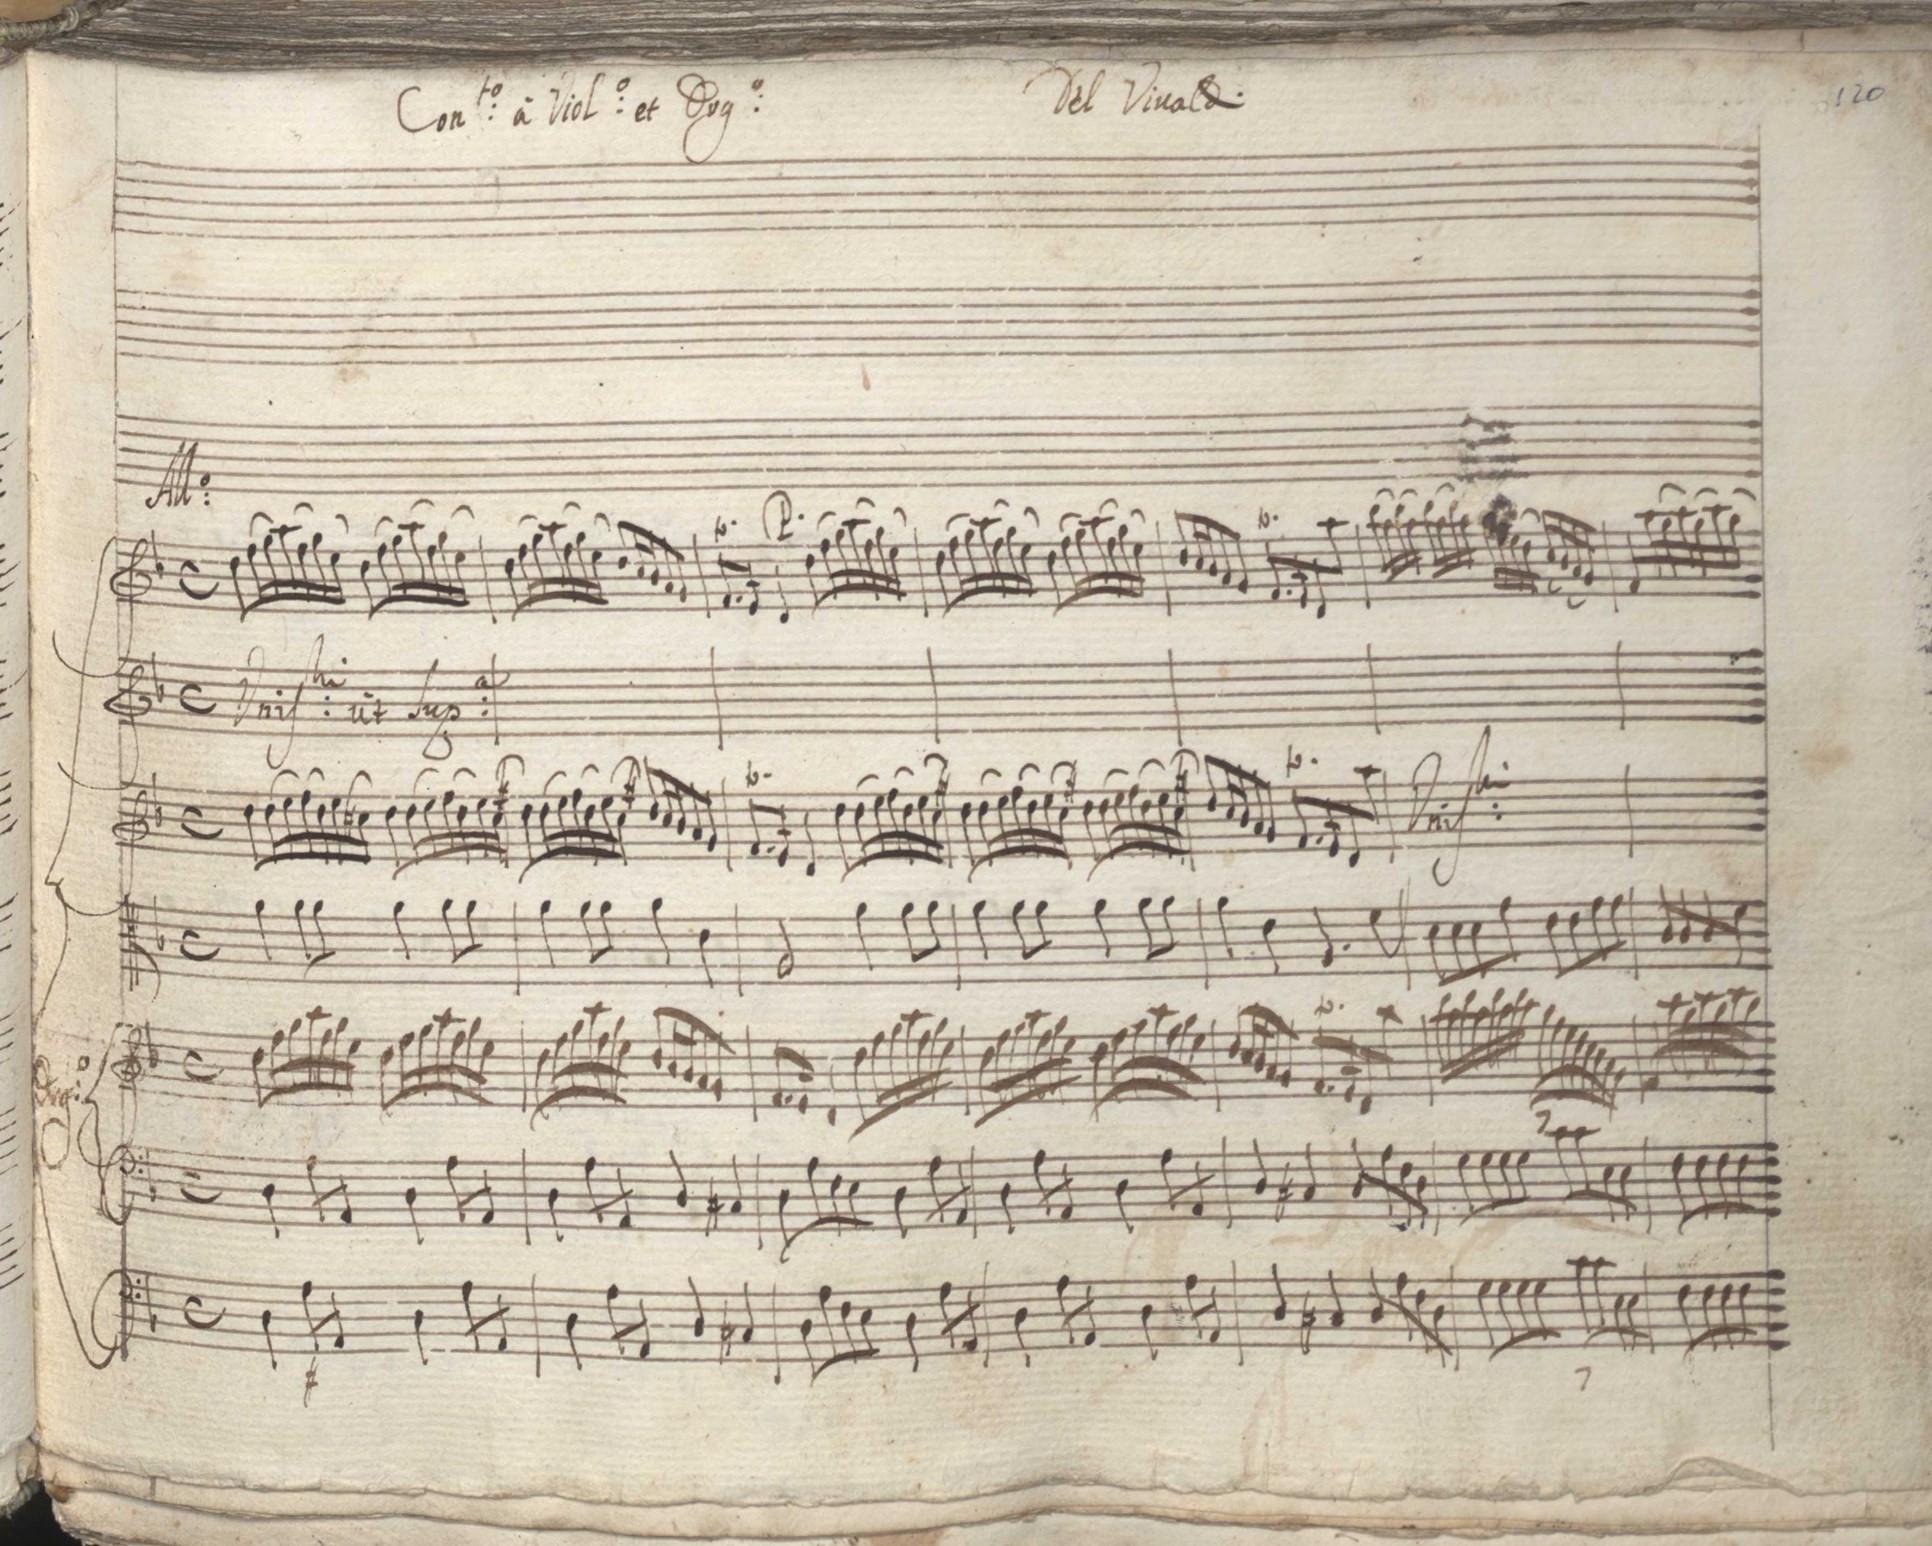 Con.to à Viol.o et Org.o Del Viualdi
120
All.o
P.
Unis.ni ut Sup.a
Unis.ni
Org.o
7
7